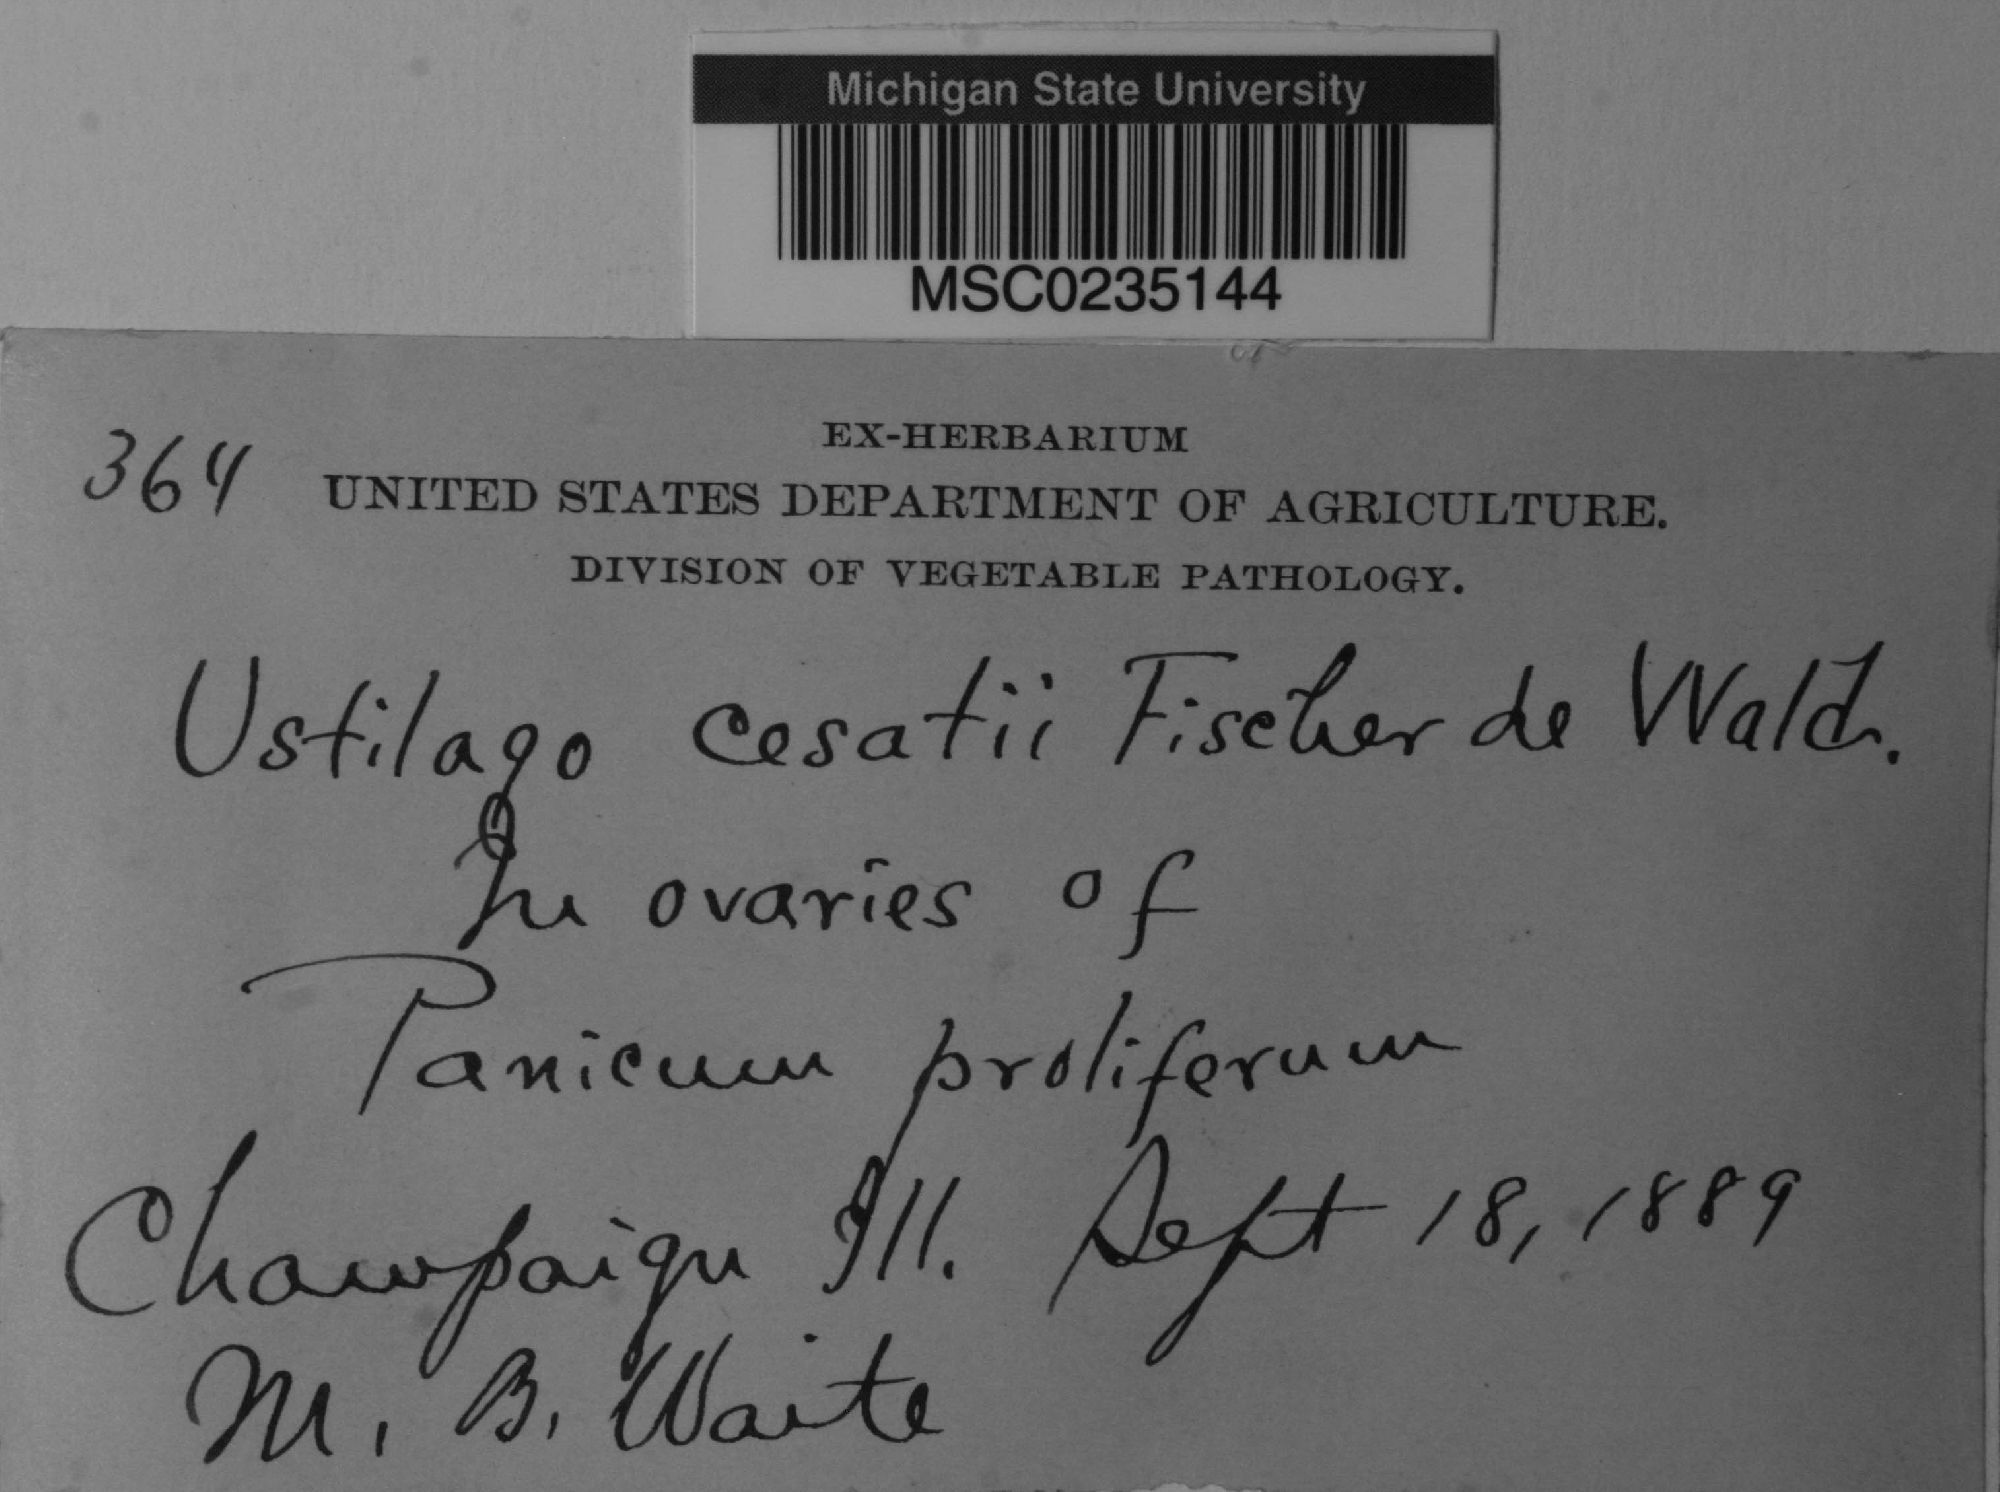 Michigan State University
MSC0235144
EX-HERBARIUM
364 UNITED STATES DEPARTMENT OF AGRICULTURE.
DIVISION OF VEGETABLE PATHOLOGY.
Ustilago cesatii Fischer de Wald.
In ovaries of
Panicum proliferum
Champaign Ill. Sept 18, 1889
M. B. Waite